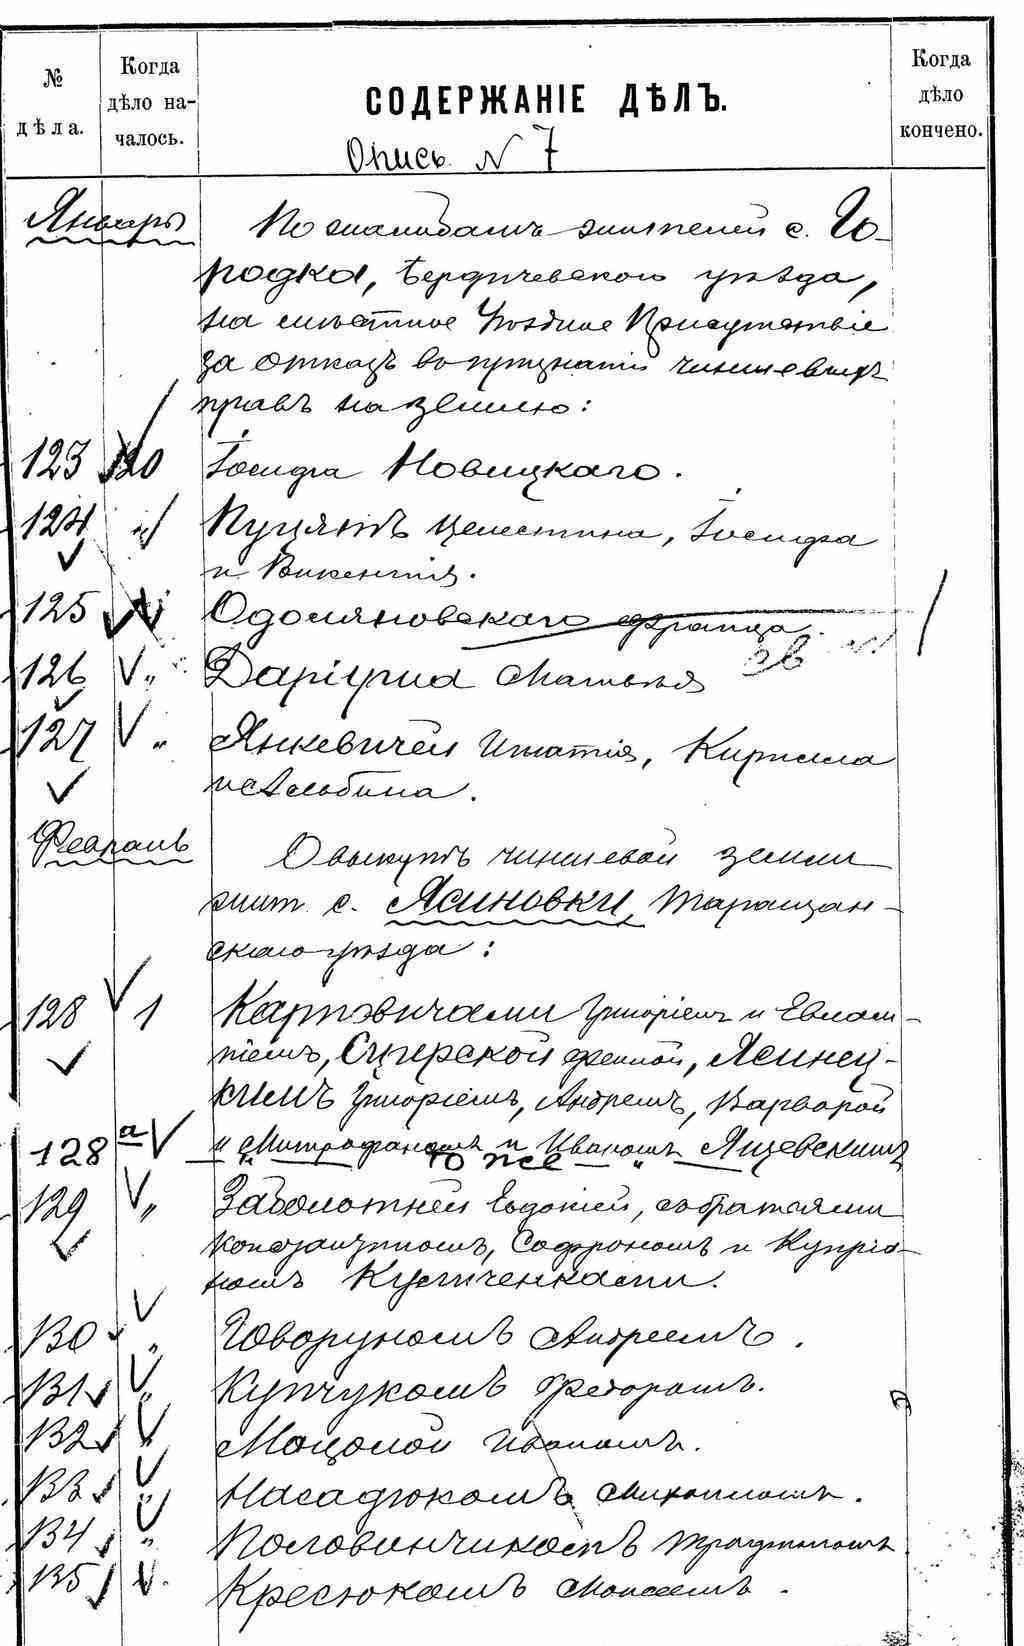 № дѣла.
Когда дѣло началось.
СОДЕРЖАНІЕ ДѢЛЪ.
Когда дѣло кончено.
Опись N 7
Январь
По жалобамъ жителей с. Го-
родка, Бердичевскаго уѣзда,
на мѣстное Уѣздное Присутствіе
за отказъ въ признаніи чиншевыхъ
правъ на землю:
123 20 Іосифа Новицкаго.
124 Пуцятъ Целестина, Іосифа
и Викентія.
125 Одомяновскаго Франца.
126 " Матвѣя
127 " Янкевичей Игнатія, Кирилла
и Альбина.
Февраль
О выкупѣ чиншевой земли
жит. с. Ясиновки, Таращан-
скаго уѣзда:
128 1 Карповичами Григоріемъ и Евлам-
піемъ, феклой, Ясинец-
кимъ Григоріемъ, Андреемъ, Варварой
128а и Митрофаномъ и Иваномъ Ящевскимъ
" то же "
129 " Заболотней Евдокіей, съ братьями
Константиномъ, Софрономъ и Купрія-
номъ Кузмиченками.
130 " Говоруномъ Андреемъ.
131 " Купчукомъ Федоромъ.
132 " Мацолой Иваномъ.
133 " Насадюкомъ Михаиломъ.
134 " Половинчикомъ
135 " Кресюкомъ Моисеемъ.